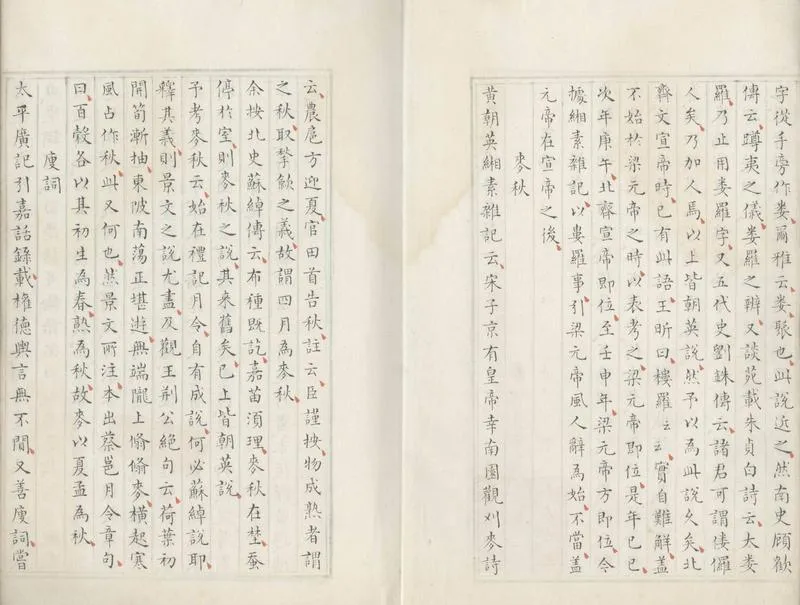 字從手旁作婁爾雅云婁聚也此說近之然南史顧歡
傳云蹲夷之儀婁羅之辨又談苑載朱貞白詩云太婁
羅乃止用婁羅字又五代史劉銖傳云諸君可謂僂儸
人矣乃加人焉以上皆朝英說然予以為此說久矣北
齊文宣帝時已有此語王昕曰樓羅實自難解蓋
不始於梁元帝之時以表考之梁元帝即位是年已巳
次年庚午北齊宣帝即位至壬申年梁元帝方即位令
據緗素雜記以婁羅事引梁元帝風人辭為始不當蓋
元帝在宣帝之後
麥秋
黃朝英緗素雜記云宋子京有皇帝幸南園觀刈麥詩
云農扈方迎夏官田首告秋註云臣謹按物成熟者謂
之秋取揫斂之義故謂四月為麥秋
余按北史蘇綽傳云布種既訖嘉苗須理麥秋在埜蚕
停於室則麥秋之說其來舊矣已上皆朝英說
予考麥秋云始在禮記月令自有成說何必蘇綽說耶
釋其義則景文之說尤盡及觀王荆公絕句云荷葉初
開筍漸抽東陂南蕩正堪遊無端隴上翛翛麥橫起寒
風占作秋此又何也然景文所注本出蔡邕月令章句
曰百穀各以其初生為春熟為秋故麥以夏孟為秋
廋詞
太平廣記引嘉話錄載權德輿言無不聞又善廋詞嘗